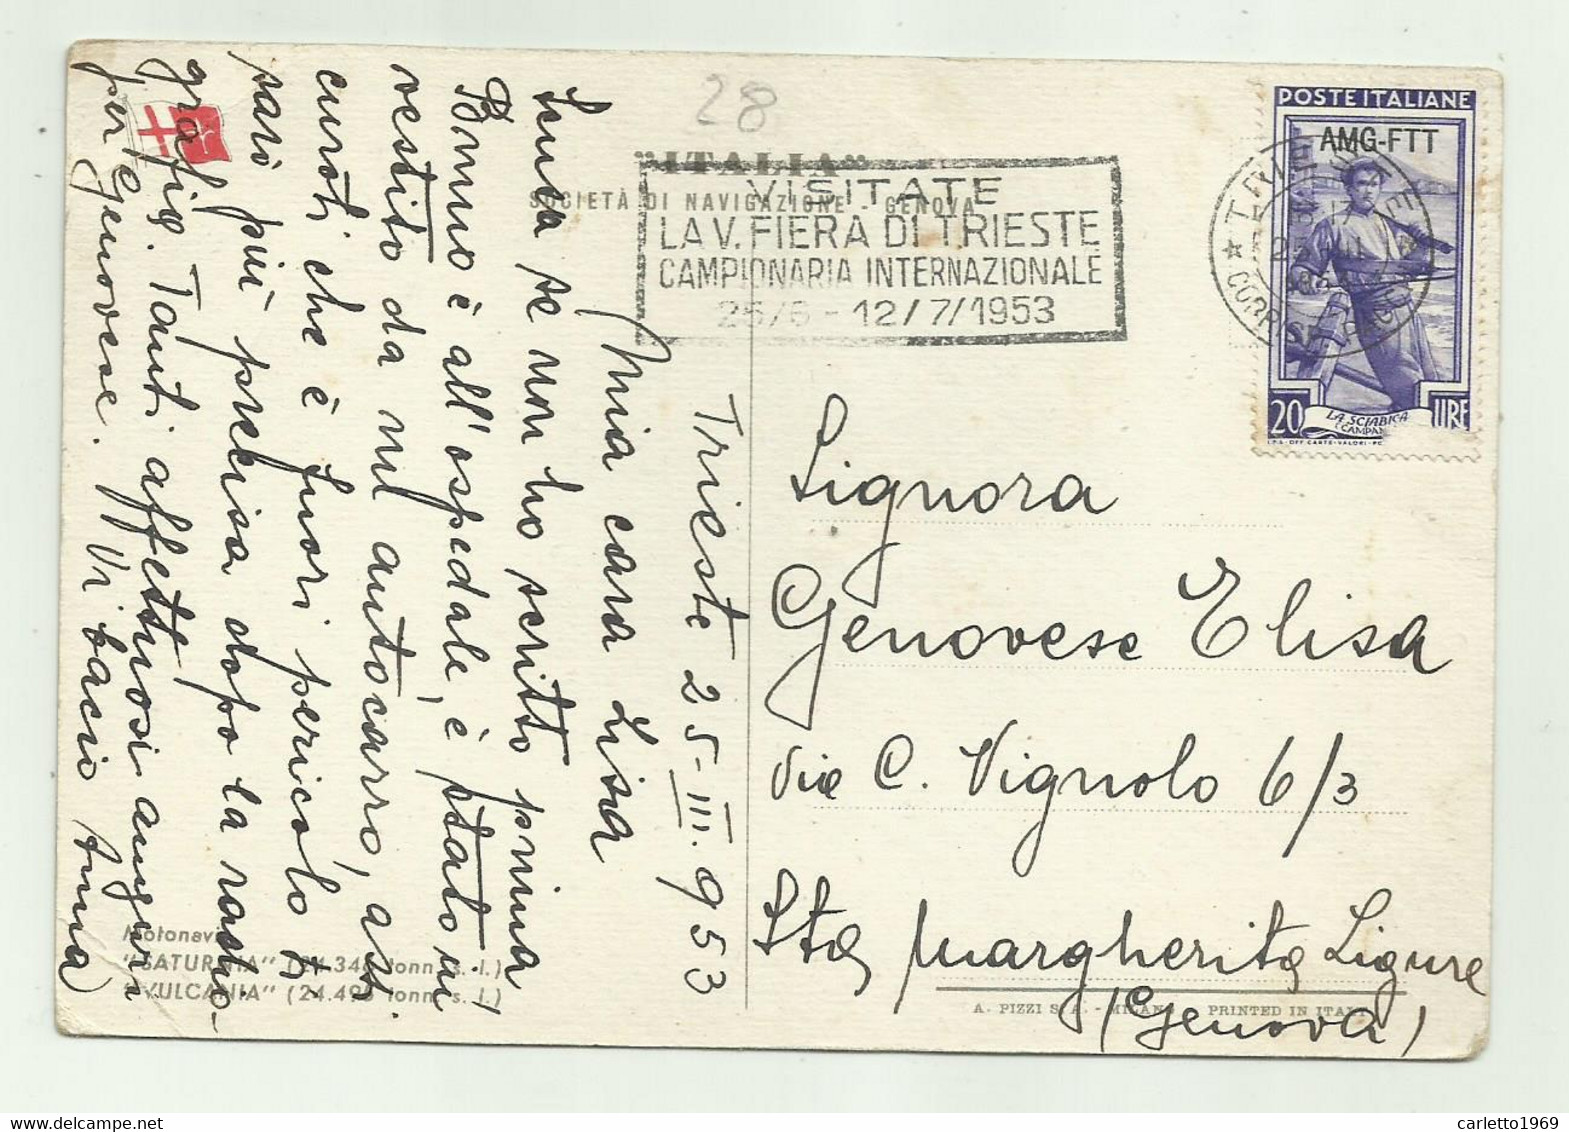 28
"ITALIA"
SOCIETÀ DI NAVIGAZIONE - GENOVA
VISITATE
LA V. FIERA DI TRIESTE
CAMPIONARIA INTERNAZIONALE
25/6 - 12/7/1953
POSTE ITALIANE
AMG-FTT
TRIESTE
CORRISP. PACCHI
20 LIRE
LA SCIABICA
(CAMPAN
Trieste 25-III.953
Mia cara Lisa
se non ho scritto prima
Bruno è all'ospedale, è stato in
vestito da un autocarro, ass.
curoti che è fuori pericolo ti
sarò più precisa dopo la radio-
grafia. Tanti affettuosi auguri
per Genovese. Vi bacio
Signora
Genovese Elisa
Via C. Vignolo 6/3
Sta Margherita Ligure
(Genova)
Motonavi
"SATURNIA" (24.346 tonn. s. l.)
"VULCANIA" (24.496 tonn. s. l.)
A. PIZZI S. A. - MILANO - PRINTED IN ITALY
carletto1969